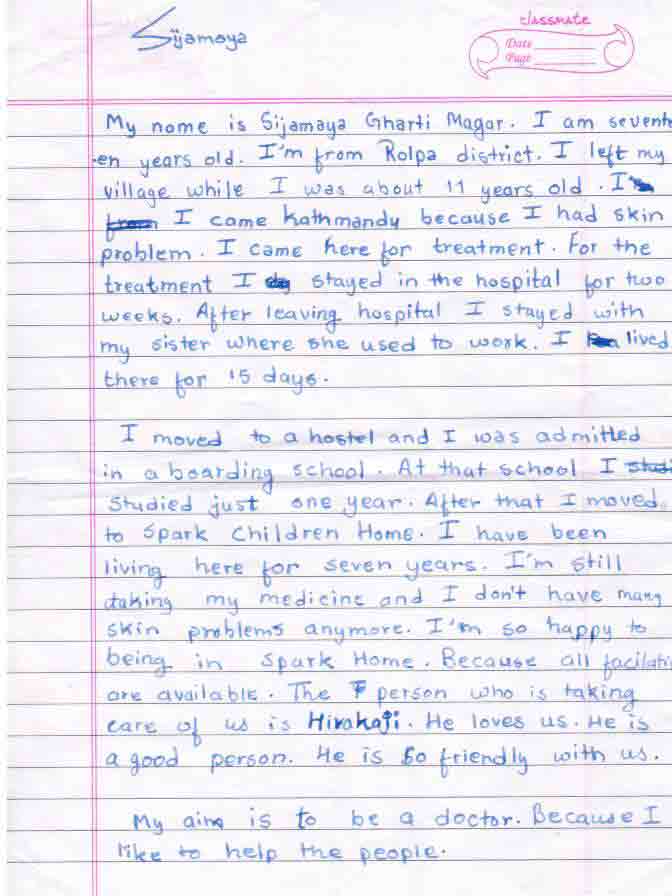 Sijamaya
classmate
Date
Page
My name is Sijamaya Gharti Magar. I am sevente
-en years old. I'm from Rolpa district. I left my
village while I was about 11 years old. I
I came Kathmandy because I had skin
problem. I came here for treatment. For the
treatment I stayed in the hospital for two
weeks. After leaving hospital I stayed with
my sister where she used to work. I lived
there for 15 days.
I moved to a hostel and I was admitted
in a boarding school. At that school I studi
studied just one year. After that I moved
to Spark Children Home. I have been
living here for seven years. I'm still
taking my medicine and I don't have many
skin problems anymore. I'm so happy to
being in Spark Home. Because all facilati
are available. The person who is taking
care of us is Hirakaji. He loves us. He is
a good person. He is so friendly with us.
My aim is to be a doctor. Because I
like to help the people.